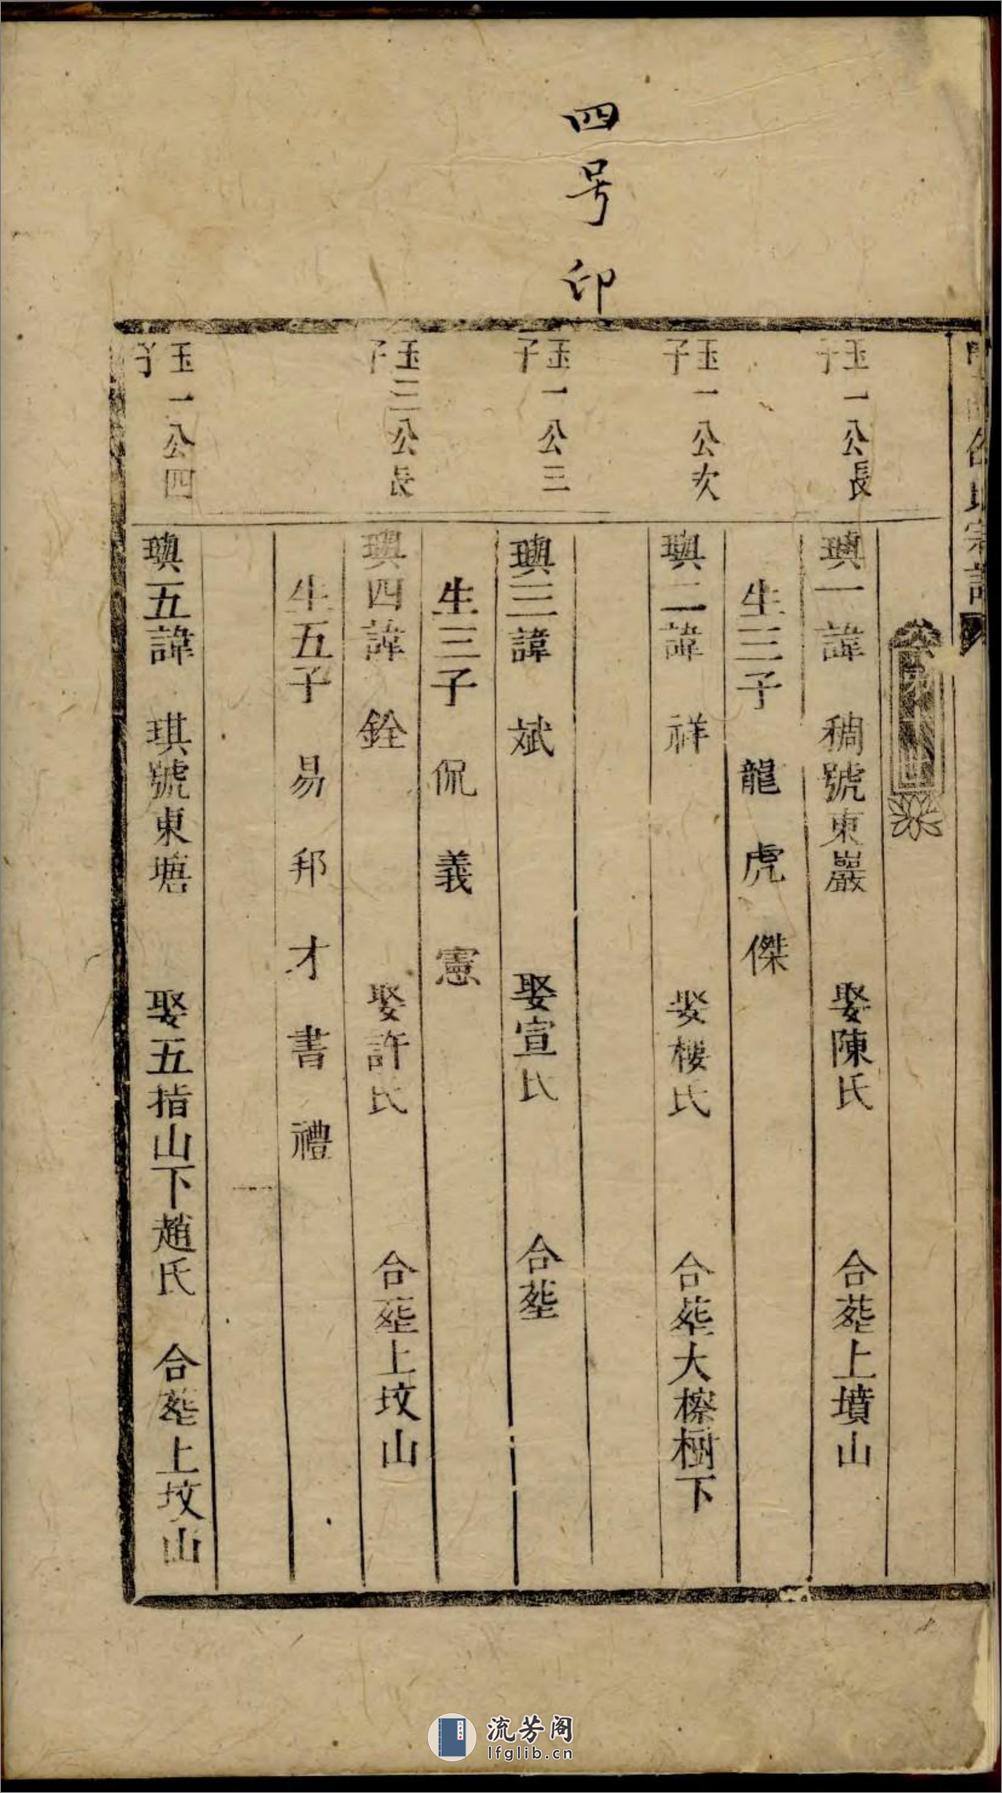 四号印
玉一公長子
璵一諱 稠號東巖 娶陳氏 合塟上墳山
生三子 龍 虎 傑
玉一公次子
璵二諱 祥 娶楼氏 合塟大檫樹下
玉一公三子
璵三諱 斌 娶宣氏 合塟
生三子 侃 義 憲
玉三公長子
璵四諱 銓 娶許氏 合塟上坟山
生五子 易 邦 才 書 禮
玉一公四子
璵五諱 琪號東塘 娶五指山下趙氏 合塟上坟山
流芳阁
lfglib.cn